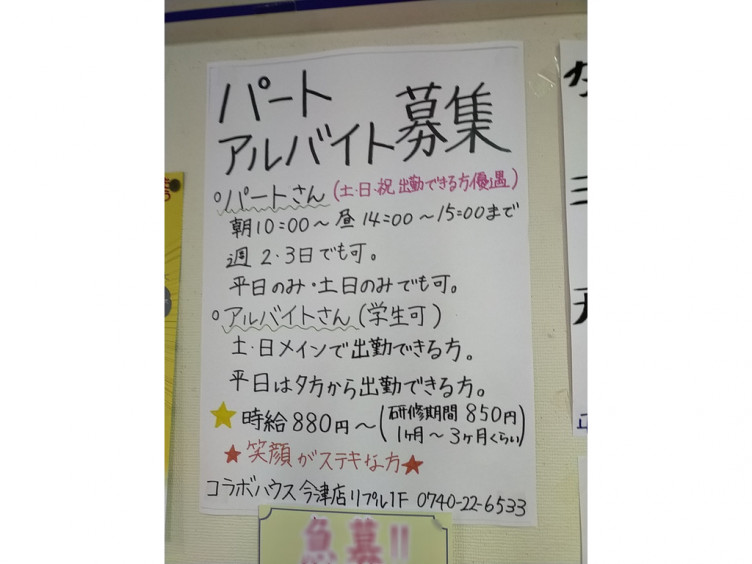 パート
アルバイト募集
○パートさん(土・日・祝 出勤できる方優遇)
朝10:00～昼14:00～15:00まで
週2・3日でも可。
平日のみ・土日のみでも可。
○アルバイトさん(学生可)
土・日メインで出勤できる方。
平日は夕方から出勤できる方。
★時給880円～(研修期間850円
1ヶ月～3ヶ月くらい)
★笑顔がステキな方★
コラボハウス今津店リプル1F 0740-22-6533
急募!!